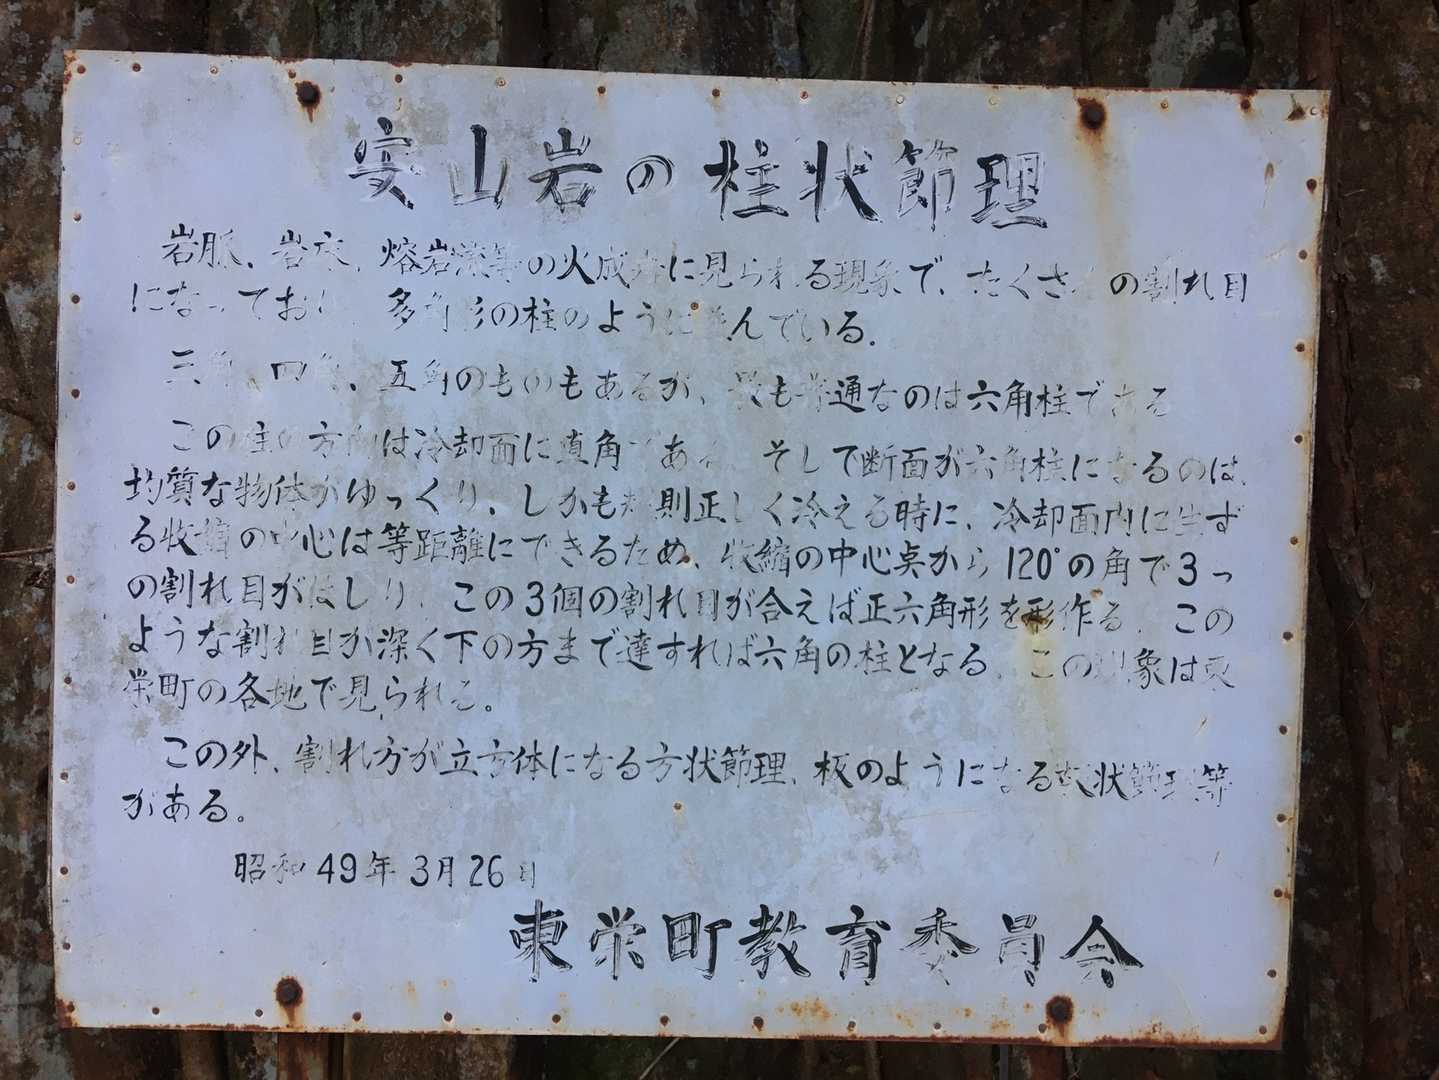 安山岩の柱状節理
岩脈、岩床、熔岩流等の火成岩に見られる現象で、たくさんの割れ目
になっており、多角形の柱のように並んでいる。
三角、四角、五角のものもあるが、最も普通なのは六角柱である
この柱の方向は冷却面に直角である。そして断面が六角柱になるのは、
均質な物体がゆっくり、しかも規則正しく冷える時に、冷却面内に生ず
る収縮の中心は等距離にできるため、収縮の中心点から120°の角で3つ
の割れ目がはしり、この3個の割れ目が合えば正六角形を形作る。この
ような割れ目が深く下の方まで達すれば六角の柱となる。この現象は東
栄町の各地で見られる。
この外、割れ方が立方体になる方状節理、板のようになる板状節理等
がある。
昭和49年3月26日
東栄町教育委員会